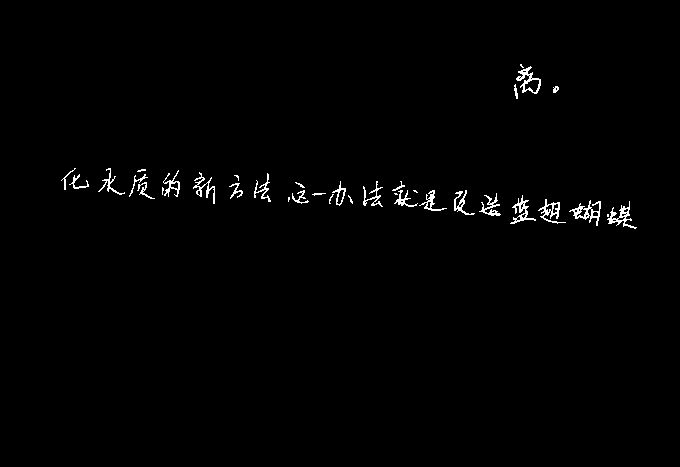 离。
化水质的新方法,这一办法就是改造蓝翅蝴蝶